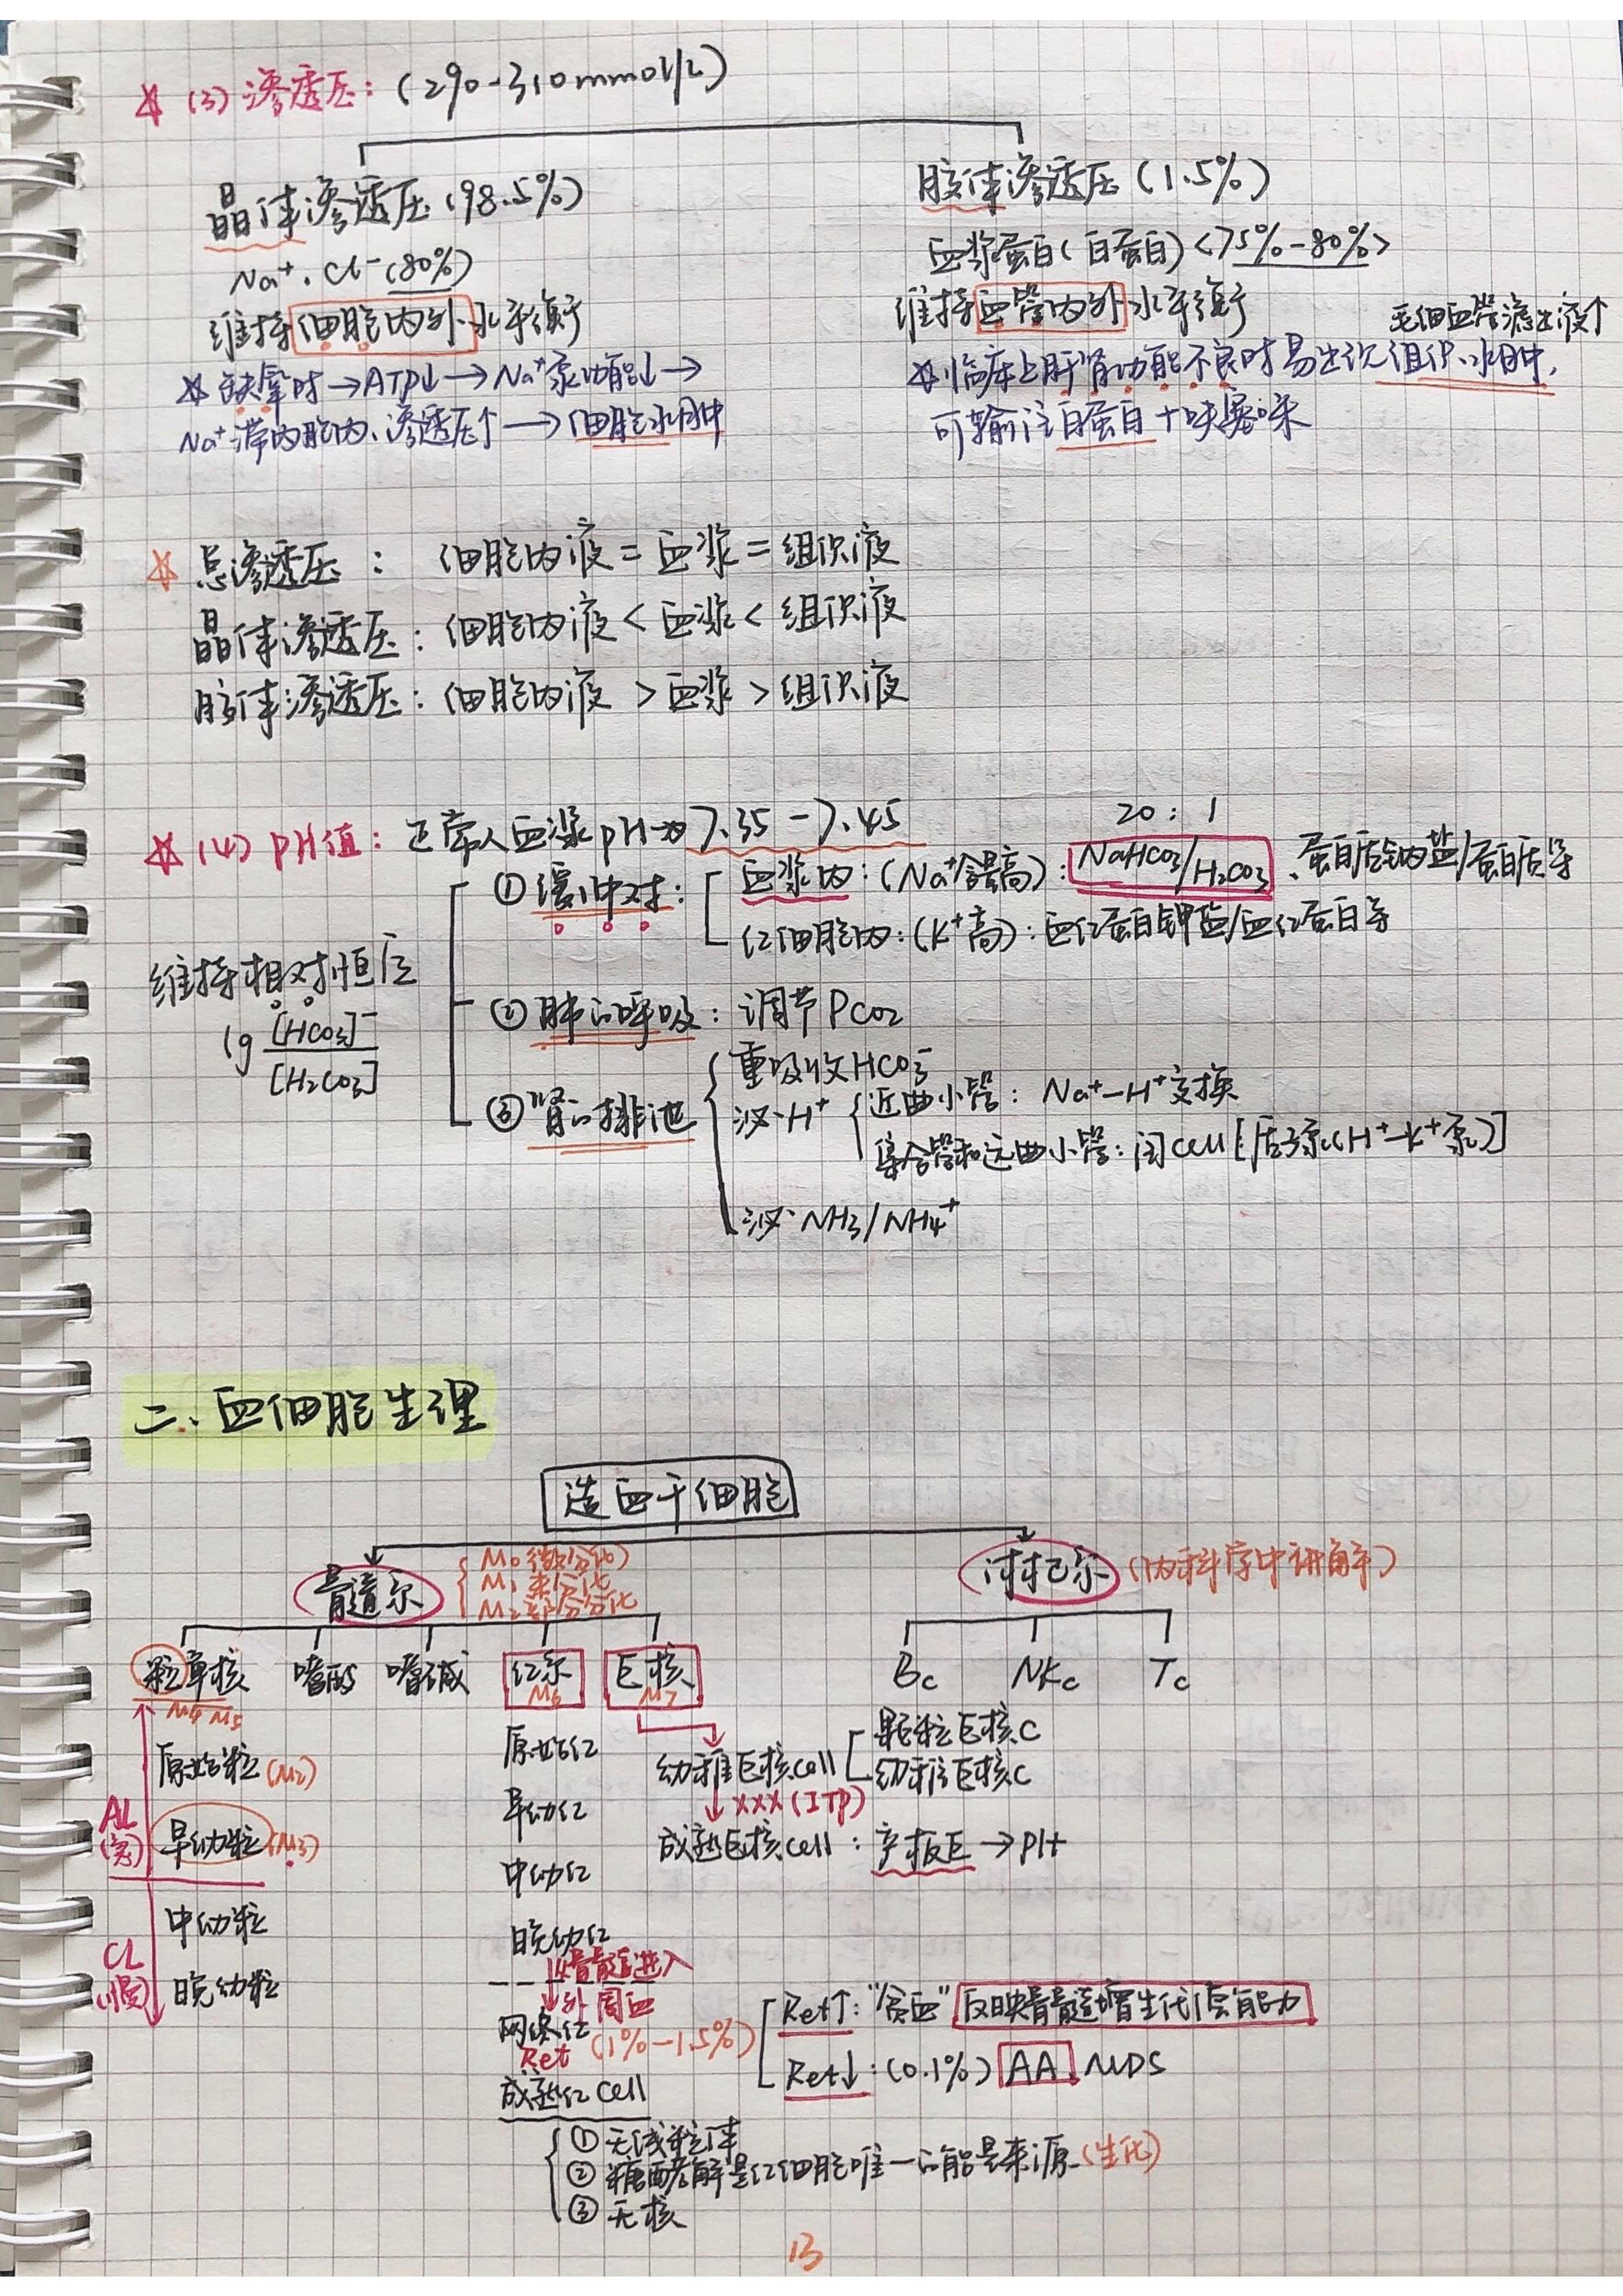 ☆ (3) 渗透压: (290-310mmol/L)
晶体渗透压 (98.5%)
Na⁺、Cl⁻ (80%)
维持细胞内外水平衡
☆ 缺氧时→ATP↓→Na⁺泵功能↓→
Na⁺滞留胞内、渗透压↑→细胞水肿
胶体渗透压 (1.5%)
血浆蛋白(白蛋白)<75%-80%>
维持血管内外水平衡
毛细血管滤出液↑
☆临床上肝肾功能不良时易出现组织水肿,
可输注白蛋白+呋塞咪
☆ 总渗透压: 细胞内液=血浆=组织液
晶体渗透压: 细胞内液<血浆<组织液
胶体渗透压: 细胞内液>血浆>组织液
☆ (4) pH值: 正常人血浆pH为7.35-7.45
20:1
维持相对恒定
lg [HCO₃]⁻/[H₂CO₃]
① 缓冲对:
血浆内:(Na⁺含量高): NaHCO₃/H₂CO₃、蛋白质钠盐/蛋白质等
红细胞内:(K⁺高): 血红蛋白钾盐/血红蛋白等
② 肺的呼吸: 调节PCO₂
③ 肾的排泄
重吸收HCO₃⁻
泌H⁺
近曲小管: Na⁺-H⁺交换
集合管和远曲小管: 闰cell[质子泵(H⁺-K⁺泵)]
泌NH₃/NH₄⁺
二、血细胞生理
造血干细胞
骨髓系
M₀(微分化)
M₁未分化
M₂部分分化
淋巴系 (内科学中讲解)
粒单核 嗜酸 嗜碱 红系 巨核
M4 M5
M6
M7
Bc NKc Tc
原始粒 (M2)
早幼粒 (M3)
中幼粒
晚幼粒
AL
(急)
CL
(慢)
原始红
早幼红
中幼红
晚幼红
从骨髓进入
外周血
网织红
Ret (1%-1.5%)
成熟红cell
幼稚巨核cell
颗粒巨核C
幼稚巨核C
↓×××(ITP)
成熟巨核cell: 产板巨→plt
Ret↑: "贫血" 反映骨髓增生代偿能力
Ret↓: (0.1%) AA、MDS
① 无线粒体
② 糖酵解是红细胞唯一的能量来源 (生化)
③ 无核
13